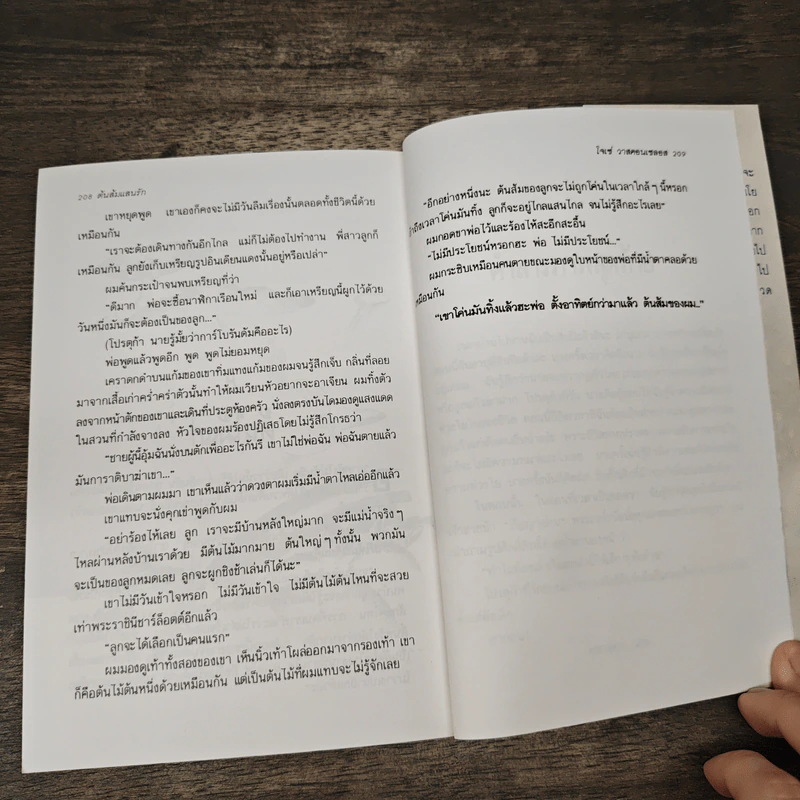 208 ต้นส้มแสนรัก
เขาหยุดพูด เขาเองก็คงจะไม่มีวันลืมเรื่องนั้นตลอดทั้งชีวิตนี้ด้วย
เหมือนกัน
“เราจะต้องเดินทางกันอีกไกล แม่ก็ไม่ต้องไปทำงาน พี่สาวลูกก็
เหมือนกัน ลูกยังเก็บเหรียญรูปอินเดียนแดงนั้นอยู่หรือเปล่า”
ผมค้นกระเป๋าจนพบเหรียญที่ว่า
“ดีมาก พ่อจะซื้อนาฬิกาเรือนใหม่ และก็เอาเหรียญนี้ผูกไว้ด้วย
วันหนึ่งมันก็จะต้องเป็นของลูก...”
(โปรตุก้า นายรู้มั้ยว่าการ์โบรันดัมคืออะไร)
พ่อพูดแล้วพูดอีก พูด พูดไม่ยอมหยุด
เคราดกดำบนแก้มของเขาทิ่มแทงแก้มของผมจนรู้สึกเจ็บ กลิ่นที่ลอย
มาจากเสื้อเก่าคร่ำคร่าตัวนั้นทำให้ผมเวียนหัวอยากจะอาเจียน ผมทิ้งตัว
ลงจากหน้าตักของเขาและเดินที่ประตูห้องครัว นั่งลงตรงบันไดมองดูแสงแดด
ในสวนที่กำลังจางลง หัวใจของผมร้องปฏิเสธโดยไม่รู้สึกโกรธว่า
“ชายผู้นี้อุ้มฉันนั่งบนตักเพื่ออะไรกันรึ เขาไม่ใช่พ่อฉัน พ่อฉันตายแล้ว
มันการาติบาฆ่าเขา...”
พ่อเดินตามผมมา เขาเห็นแล้วว่าดวงตาผมเริ่มมีน้ำตาไหลเอ่ออีกแล้ว
เขาแทบจะนั่งคุกเข่าพูดกับผม
“อย่าร้องไห้เลย ลูก เราจะมีบ้านหลังใหญ่มาก จะมีแม่น้ำจริงๆ
ไหลผ่านหลังบ้านเราด้วย มีต้นไม้มากมาย ต้นใหญ่ๆ ทั้งนั้น พวกมัน
จะเป็นของลูกหมดเลย ลูกจะผูกชิงช้าเล่นก็ได้นะ”
เขาไม่มีวันเข้าใจหรอก ไม่มีวันเข้าใจ ไม่มีต้นไม้ต้นไหนที่จะสวย
เท่าพระราชินีชาร์ล็อตต์อีกแล้ว
“ลูกจะได้เลือกเป็นคนแรก”
ผมมองดูเท้าทั้งสองของเขา เห็นนิ้วเท้าโผล่ออกมาจากรองเท้า เขา
ก็คือต้นไม้ต้นหนึ่งด้วยเหมือนกัน แต่เป็นต้นไม้ที่ผมแทบจะไม่รู้จักเลย
โจเซ่ วาสคอนเซลอส 209
“อีกอย่างหนึ่งนะ ต้นส้มของลูกจะไม่ถูกโค่นในเวลาใกล้ๆ นี้หรอก
ถ้าถึงเวลาโค่นมันทิ้ง ลูกก็จะอยู่ไกลแสนไกล จนไม่รู้สึกอะไรเลย”
ผมกอดขาพ่อไว้และร้องไห้สะอึกสะอื้น
“ไม่มีประโยชน์หรอกฮะ พ่อ ไม่มีประโยชน์...”
ผมกระซิบเหมือนคนตายขณะมองดูใบหน้าของพ่อที่มีน้ำตาคลอด้วย
เหมือนกัน
“เขาโค่นมันทิ้งแล้วฮะพ่อ ตั้งอาทิตย์กว่ามาแล้ว ต้นส้มของผม...”